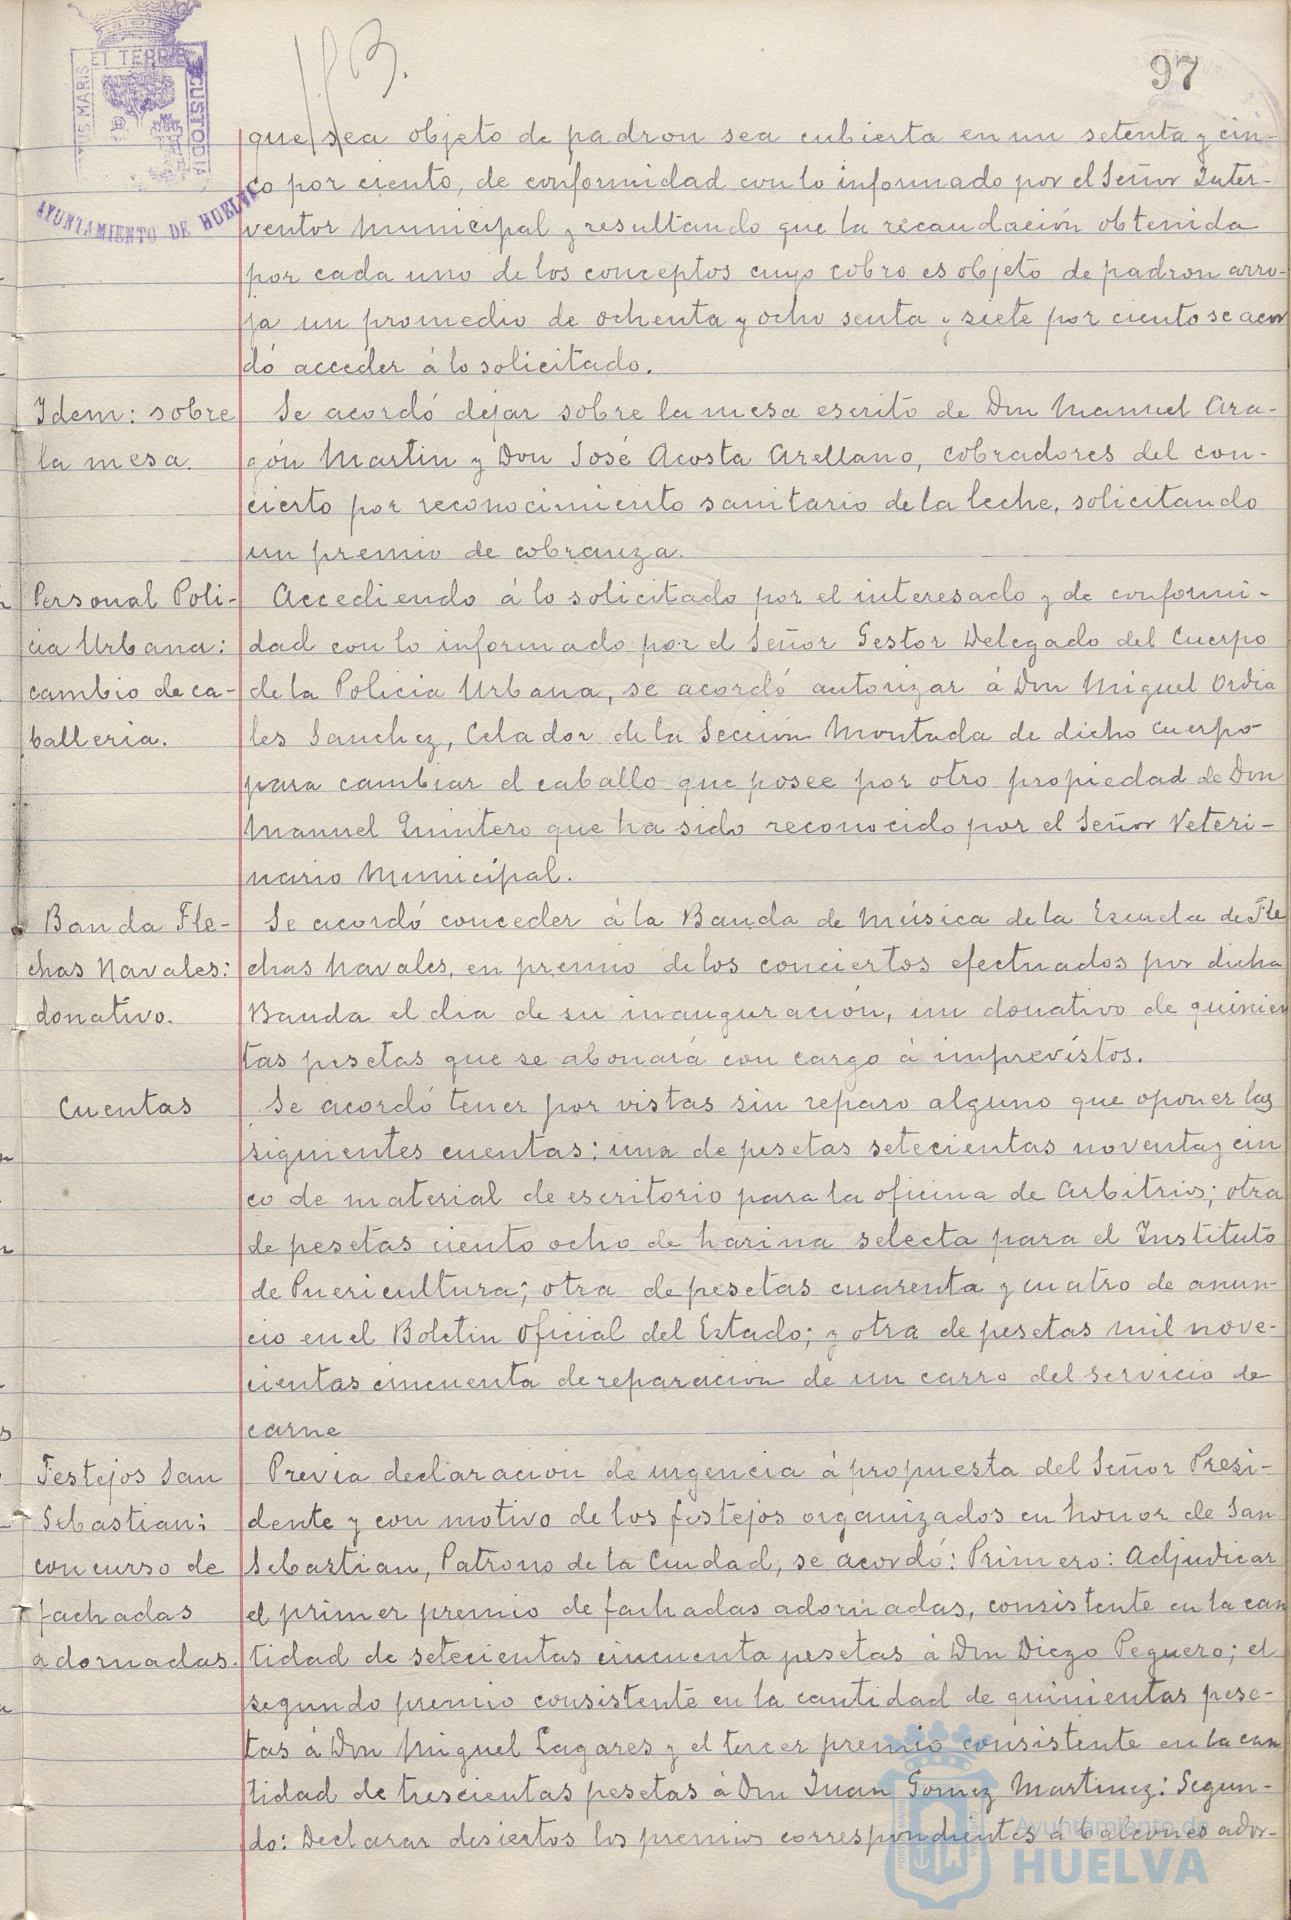 97
ET TERRE
CUSTODIA
AYUNTAMIENTO DE HUELVA
que sea objeto de padron sea cubierta en un setenta y cin-
co por ciento, de conformidad con lo informado por el Señor Inter-
ventor Municipal y resultando que la recaudación obtenida
por cada uno de los conceptos cuyo cobro es objeto de padron arro-
ja un promedio de ochenta y ocho senta y siete por ciento se acor
dó acceder á lo solicitado.
Idem: sobre
la mesa.
Se acordó dejar sobre la mesa escrito de Don Manuel Ara-
gón Martin y Don José Acosta Arellano, cobradores del con-
cierto por reconocimiento sanitario de la leche, solicitando
un premio de cobranza.
Personal Poli-
cia Urbana:
cambio de ca-
balleria.
Accediendo á lo solicitado por el interesado y de conformi-
dad con lo informado por el Señor Gestor Delegado del Cuerpo
de la Policia Urbana, se acordó autorizar á Don Miguel Ordia
les Sanchez, Celador de la Sección Montada de dicho cuerpo
para cambiar el caballo que posee por otro propiedad de Don
Manuel Quintero que ha sido reconocido por el Señor Veteri-
nario Municipal.
Banda Fle-
chas Navales:
donativo.
Se acordó conceder á la Banda de Música de la Escuela de Fle
chas Navales, en premio de los conciertos efectuados por dicha
Banda el dia de su inauguración, un donativo de quinien
tas pesetas que se abonará con cargo á imprevistos.
Cuentas
Se acordó tener por vistas sin reparo alguno que oponer las
siguientes cuentas: una de pesetas setecientas noventa y cin
co de material de escritorio para la oficina de Arbitrios; otra
de pesetas ciento ocho de harina selecta para el Instituto
de Puericultura; otra de pesetas cuarenta y cuatro de anun-
cio en el Boletin Oficial del Estado; y otra de pesetas mil nove-
cientas cincuenta de reparacion de un carro del servicio de
carne
Festejos San
Sebastian:
concurso de
fachadas
adornadas.
Previa declaracion de urgencia á propuesta del Señor Presi-
dente y con motivo de los festejos organizados en honor de San
Sebastian, Patrono de la Ciudad, se acordó: Primero: Adjudicar
el primer premio de fachadas adornadas, consistente en la can
tidad de setecientas cincuenta pesetas á Don Diego Peguero; el
segundo premio consistente en la cantidad de quinientas pese-
tas á Don Miguel Lagares y el tercer premio consistente en la can
tidad de trescientas pesetas á Don Juan Gomez Martinez: Segun-
do: Declarar desiertos los premios correspondientes á balcones ador-
Ayuntamiento de
HUELVA